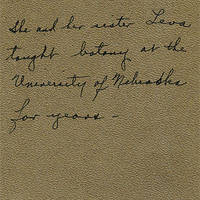 She and her sister Leva
taught botany at the
University of Nebraska
for years –